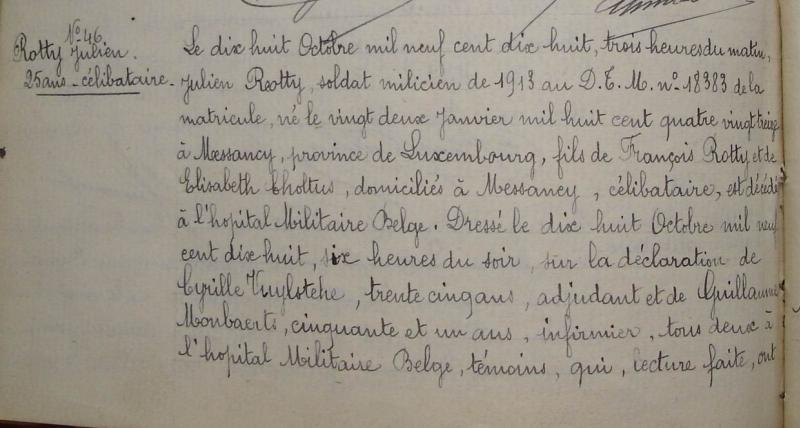 N° 46.
Rotty Julien.
25 ans - célibataire.
Le dix huit Octobre mil neuf cent dix huit, trois heures du matin,
Julien Rotty, soldat milicien de 1913 au D.T.M. n° 18383 de la
matricule, né le vingt deux Janvier mil huit cent quatre vingt treize
à Messancy, province de Luxembourg, fils de François Rotty et de
Elisabeth Choltus, domiciliés à Messancy, célibataire, est décédé
à l'hopital Militaire Belge. Dressé le dix huit Octobre mil neuf
cent dix huit, six heures du soir, sur la déclaration de
Cyrille Vuylsteke, trente cinq ans, adjudant et de Guillaume
Monbaerts, cinquante et un ans, infirmier, tous deux à
l'hopital Militaire Belge, témoins, qui, lecture faite, ont